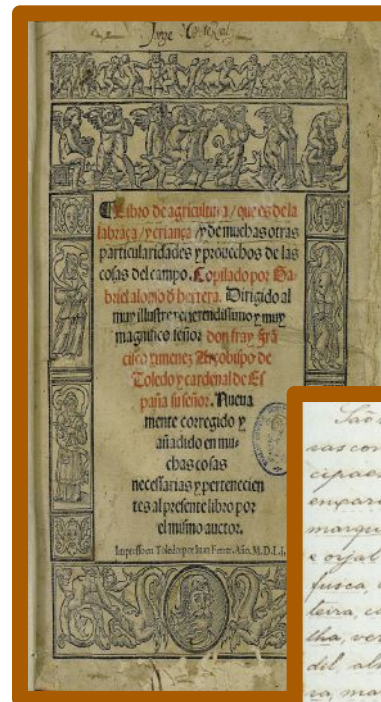 Libro de agricultura / que es de la
labrãça / y criança / y de muchas otras
particularidades y prouechos de las
cosas del campo. Copilado por Ga-
briel alonso d̛ herrera. Dirigido al
muy illustre y reuerendissimo y muy
magnifico señor don fray Frã
cisco ximenez Arçobispo de
Toledo y cardenal de Es
paña su señor. Nueua
mente corregido y
añadido en mu-
chas cosas
necessarias y pertenecien
tes al presente libro por
el mismo auctor.
Impresso en Toledo por Iuan Ferrer. Año. M.D.L.I.
fusca,
teira, c
lha, ver
dil, al